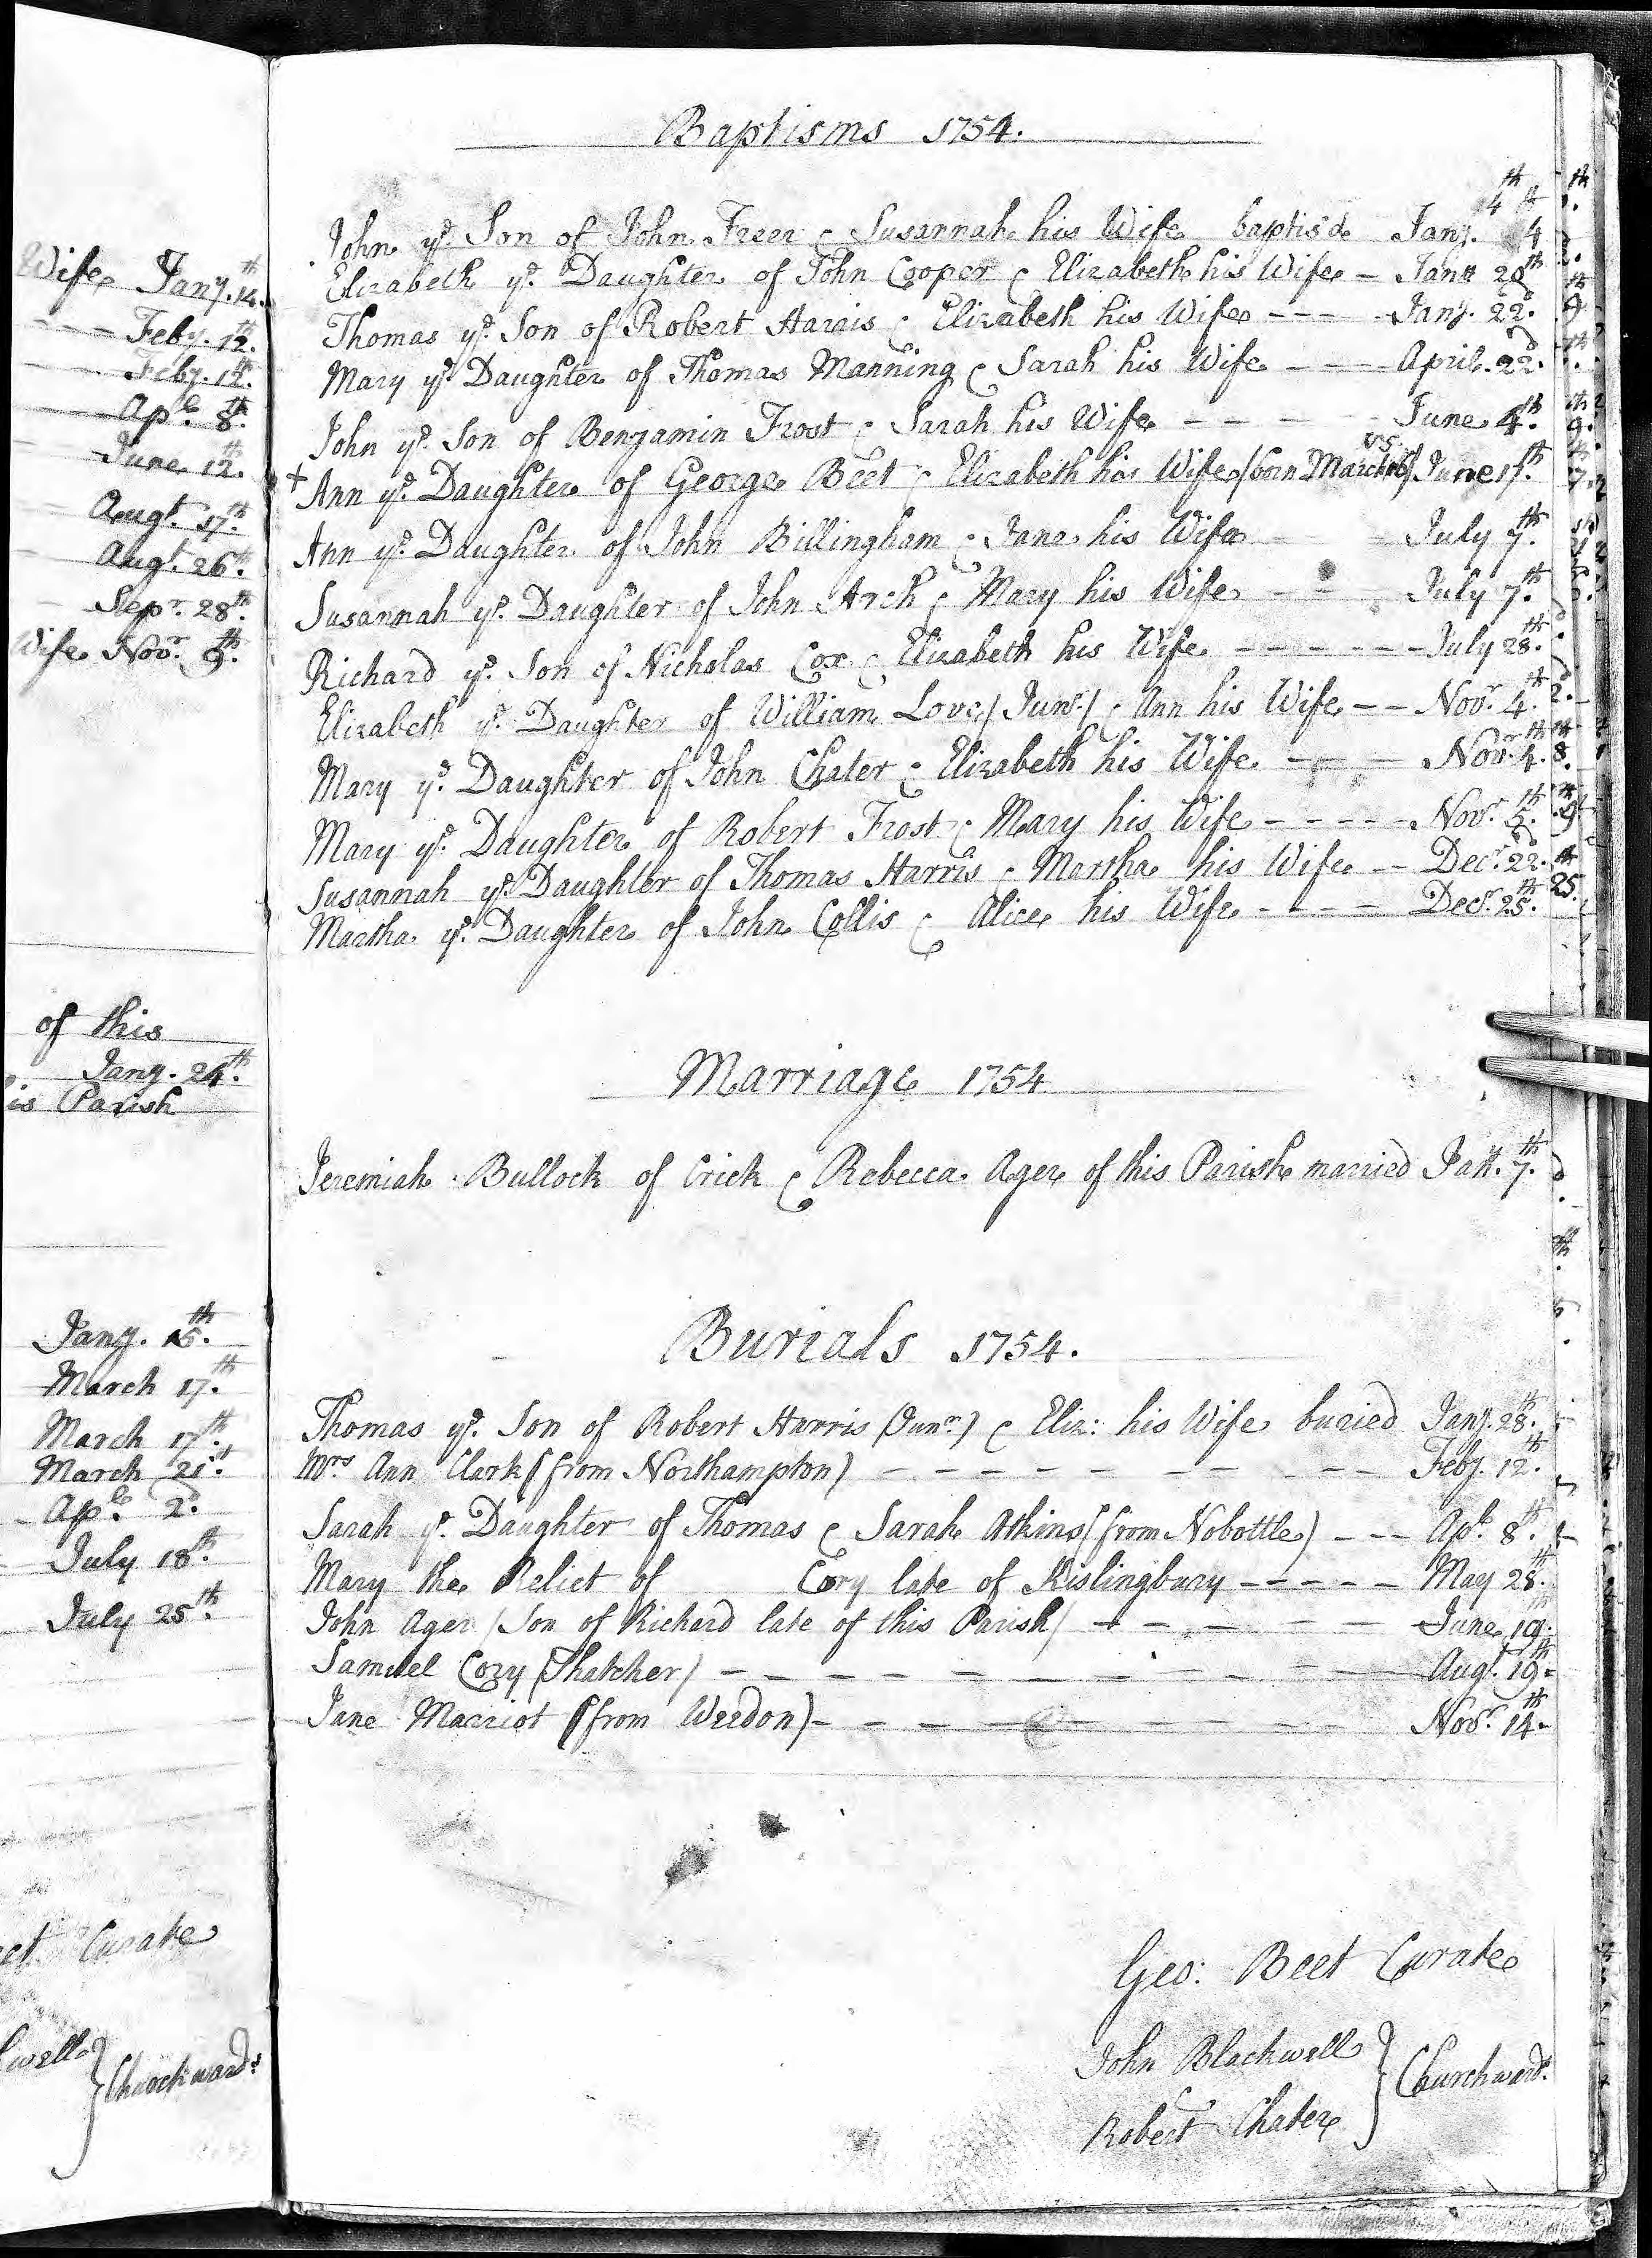 Wife Jany. 14th.
Feby. 12th.
Feby. 12th.
Apl. 8th.
June 12th.
Augt. 17th.
Augt. 26th.
Sepr. 28th.
Wife Novr. 9th.
of this
Jany. 24th.
is Parish
Jany. 15th.
March 17th.
March 17th.
March 21st.
Apl. 2d.
July 18th.
July 25th.
Curate
Churchwards.
Baptisms 1754.
John ye. Son of John Freer & Susannah his Wife baptis'd Jany. 4th
Elizabeth ye. Daughter of John Cooper & Elizabeth his Wife - Jan 20th
Thomas ye. Son of Robert Harris & Elizabeth his Wife ---- Jany. 22d.
Mary ye. Daughter of Thomas Manning & Sarah his Wife ---- April. 22d.
John ye. Son of Benjamin Frost & Sarah his Wife - - - - June 4th.
+ Ann ye. Daughter of George Beet & Elizabeth his Wife (born March) June 17th.
Ann ye. Daughter of John Billingham & Jane his Wife - - July 7th.
Susannah ye. Daughter of John Arch & Mary his Wife - - - July 7th.
Richard ye. Son of Nicholas Cox & Elizabeth his Wife ------ July 28th.
Elizabeth ye. Daughter of William Love (Junr.) & Ann his Wife -- Novr. 4th.
Mary ye. Daughter of John Chater & Elizabeth his Wife - - - Novr. 4th.
Mary ye. Daughter of Robert Frost & Mary his Wife ----- Novr. 5th.
Susannah ye. Daughter of Thomas Harris & Martha his Wife -- Decr. 22d.
Martha ye. Daughter of John Collis & Alice his Wife ---- Decr. 25th.
Marriage 1754
Jeremiah Bullock of Crick & Rebecca Ager of this Parish married Jan. 7th.
Burials 1754.
Thomas ye. Son of Robert Harris (Junr.) & Eliz: his Wife buried Jany. 28th.
Mrs Ann Clark (from Northampton) - - - - - - - - Feby. 12th.
Sarah ye. Daughter of Thomas & Sarah Atkins (from Nobottle) --- Apl. 8th.
Mary the Relict of Cory late of Kislingbury ----- May 28th.
John Ager (Son of Richard late of this Parish) - - - - - - June 19th.
Samuel Cory (Thatcher) - - - - - - - - - - - Augt. 19th.
Jane Marriot (from Weedon) - - - - - - - - - - Novr. 14th.
Geo: Beet Curate
John Blackwell
Robert Chater
Churchwards.